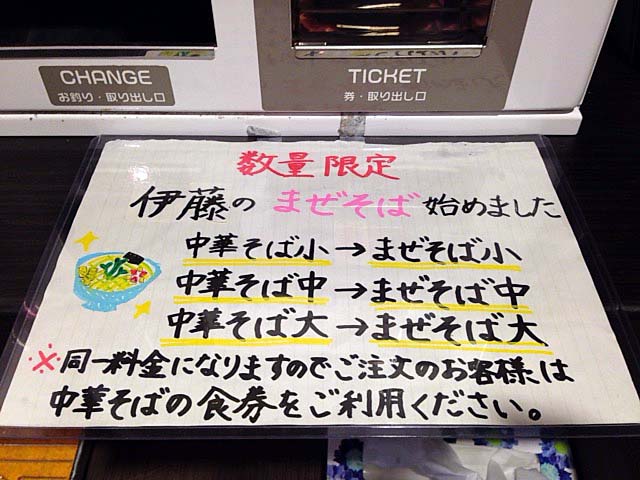 CHANGE
お釣り・取り出し口
TICKET
券・取り出し口
数量限定
伊藤の まぜそば 始めました
中華そば小→まぜそば小
中華そば中→まぜそば中
中華そば大→まぜそば大
※同一料金になりますのでご注文のお客様は
中華そばの食券をご利用ください。